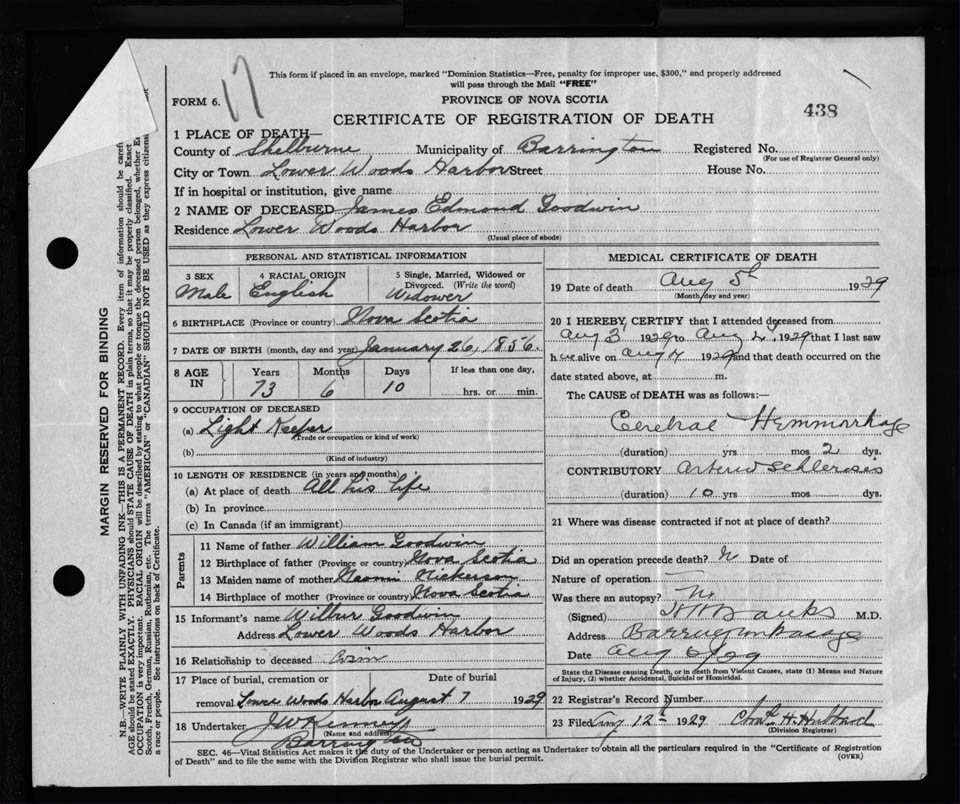 This form if placed in an envelope, marked "Dominion Statistics—Free, penalty for improper use, $300," and properly addressed
will pass through the Mail "FREE"
17
FORM 6.
PROVINCE OF NOVA SCOTIA
438
CERTIFICATE OF REGISTRATION OF DEATH
1 PLACE OF DEATH—
County of Shelburne Municipality of Barrington Registered No.
(For use of Registrar General only)
City or Town Lower Woods Harbor Street House No.
If in hospital or institution, give name
2 NAME OF DECEASED James Edmond Goodwin
Residence Lower Woods Harbor
(Usual place of abode)
PERSONAL AND STATISTICAL INFORMATION
3 SEX 4 RACIAL ORIGIN 5 Single, Married, Widowed or
Divorced. (Write the word)
Male English Widower
6 BIRTHPLACE (Province or country) Nova Scotia
7 DATE OF BIRTH (month, day and year) January 26, 1856.
8 AGE IN Years Months Days If less than one day,
73 6 10 hrs. or min.
9 OCCUPATION OF DECEASED
(a) Light Keeper
(Trade or occupation or kind of work)
(b)
(Kind of industry)
10 LENGTH OF RESIDENCE (in years and months)
(a) At place of death All his life
(b) In province
(c) In Canada (if an immigrant)
Parents
11 Name of father William Goodwin
12 Birthplace of father (Province or country) Nova Scotia
13 Maiden name of mother Naomi Nickerson
14 Birthplace of mother (Province or country) Nova Scotia
15 Informant's name Wilbur Goodwin
Address Lower Woods Harbor
16 Relationship to deceased Cosin
17 Place of burial, cremation or Date of burial
removal Lower Woods Harbor August 7 1929
18 Undertaker J W Kenney
(Name and address)
Barrington
MEDICAL CERTIFICATE OF DEATH
19 Date of death Aug 5th 1929
(Month, day and year)
20 I HEREBY CERTIFY that I attended deceased from
Aug 3 1929 to Aug 4, 1929 that I last saw
h im alive on Aug 4 1929 and that death occurred on the
date stated above, at m.
The CAUSE of DEATH was as follows:—
Cerebral Hemmorhage
(duration) yrs mos 2 dys.
CONTRIBUTORY Arterio schlerosis
(duration) 10 yrs mos dys.
21 Where was disease contracted if not at place of death?
Did an operation precede death? N Date of
Nature of operation
Was there an autopsy? No
(Signed) Banks M.D.
Address Barrington Passage
Date Aug 6/29
State the Disease causing Death, or in death from Violent Causes, state (1) Means and Nature
of Injury, (2) whether Accidental, Suicidal or Homicidal.
22 Registrar's Record Number
23 Filed Aug 12th 1929 Chas. H. Hubbard
(Division Registrar)
SEC. 46—Vital Statistics Act makes it the duty of the Undertaker or person acting as Undertaker to obtain all the particulars required in the "Certificate of Registration
of Death" and to file the same with the Division Registrar who shall issue the burial permit.
(OVER)
MARGIN RESERVED FOR BINDING
N.B.—WRITE PLAINLY WITH UNFADING INK—THIS IS A PERMANENT RECORD. Every item of information should be
AGE should be stated EXACTLY. PHYSICIANS should STATE CAUSE OF DEATH in plain terms, so that it may be properly classified. Exact
OCCUPATION is very important. RACIAL ORIGIN will be described by stating to what people or tongue the deceased person belonged, whether
Scotch, French, German, Russian, Ruthenian, etc. The terms "AMERICAN" or "CANADIAN" SHOULD NOT BE USED as they express
a race or people. See instructions on back of Certificate.